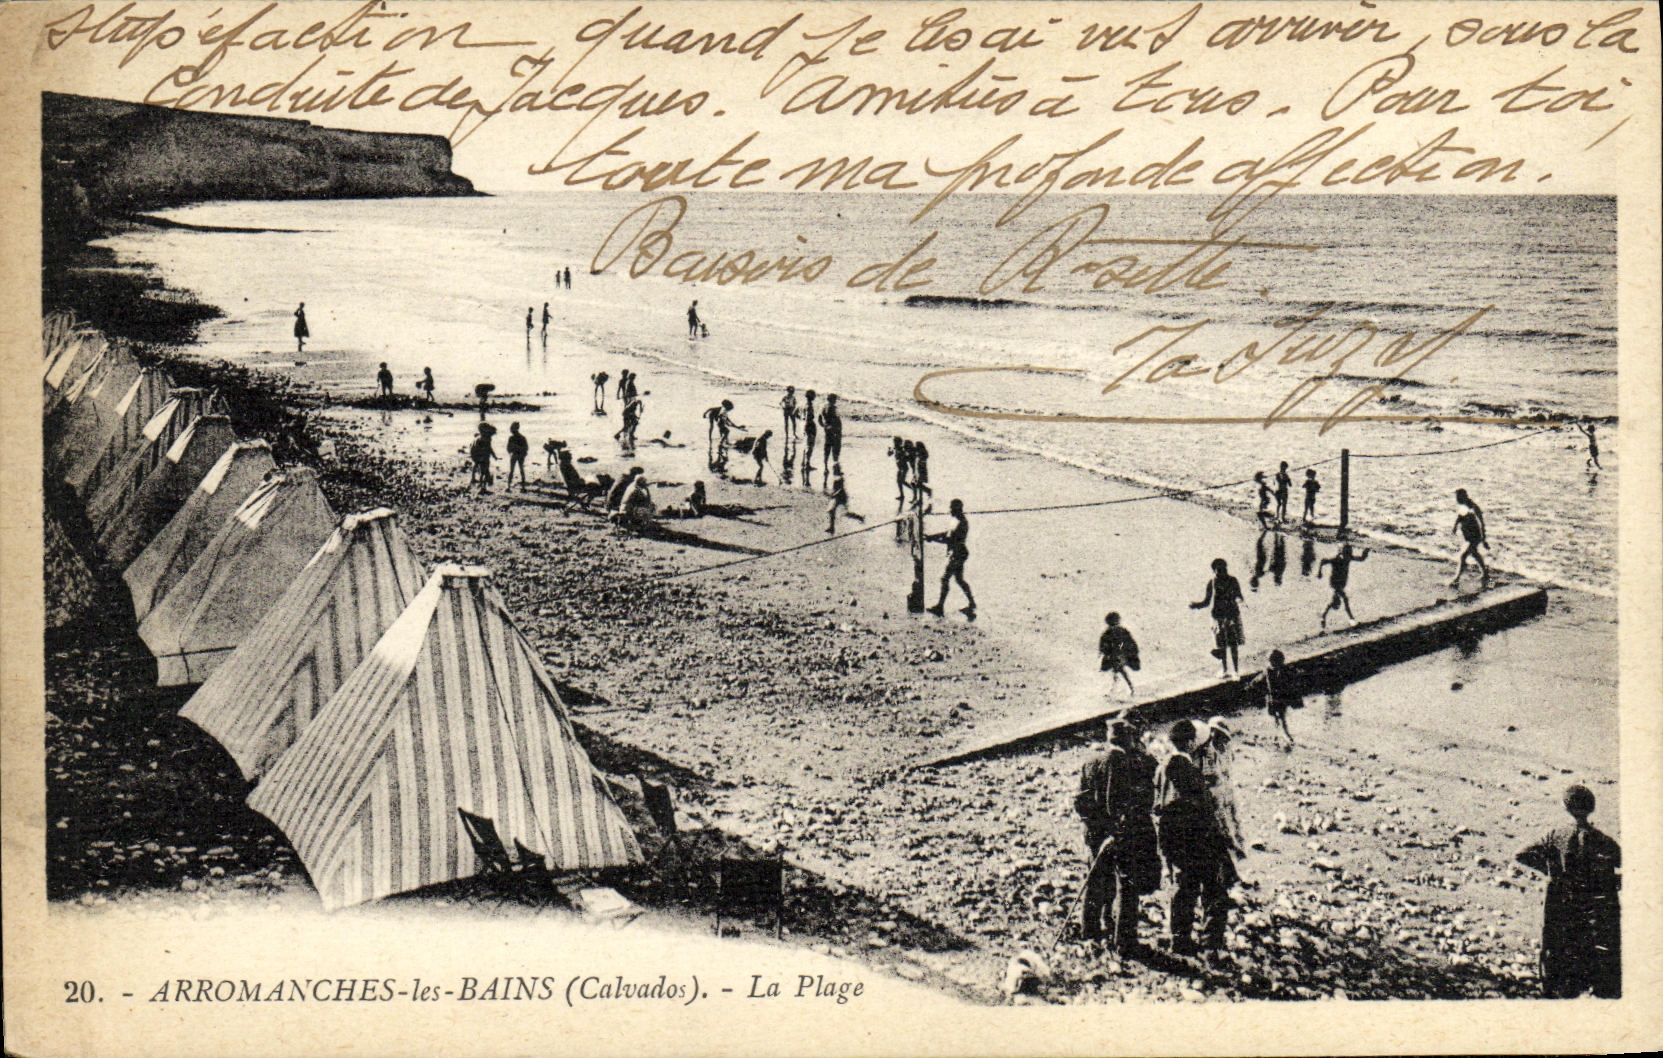 stupéfaction, quand je les ai vus arriver, sous la
Conduite de Jacques. Amitiés à tous. Pour toi,
toute ma profonde affection.
Baisers de Rosette.
Ta Suzy.
20. - ARROMANCHES-les-BAINS (Calvados). - La Plage